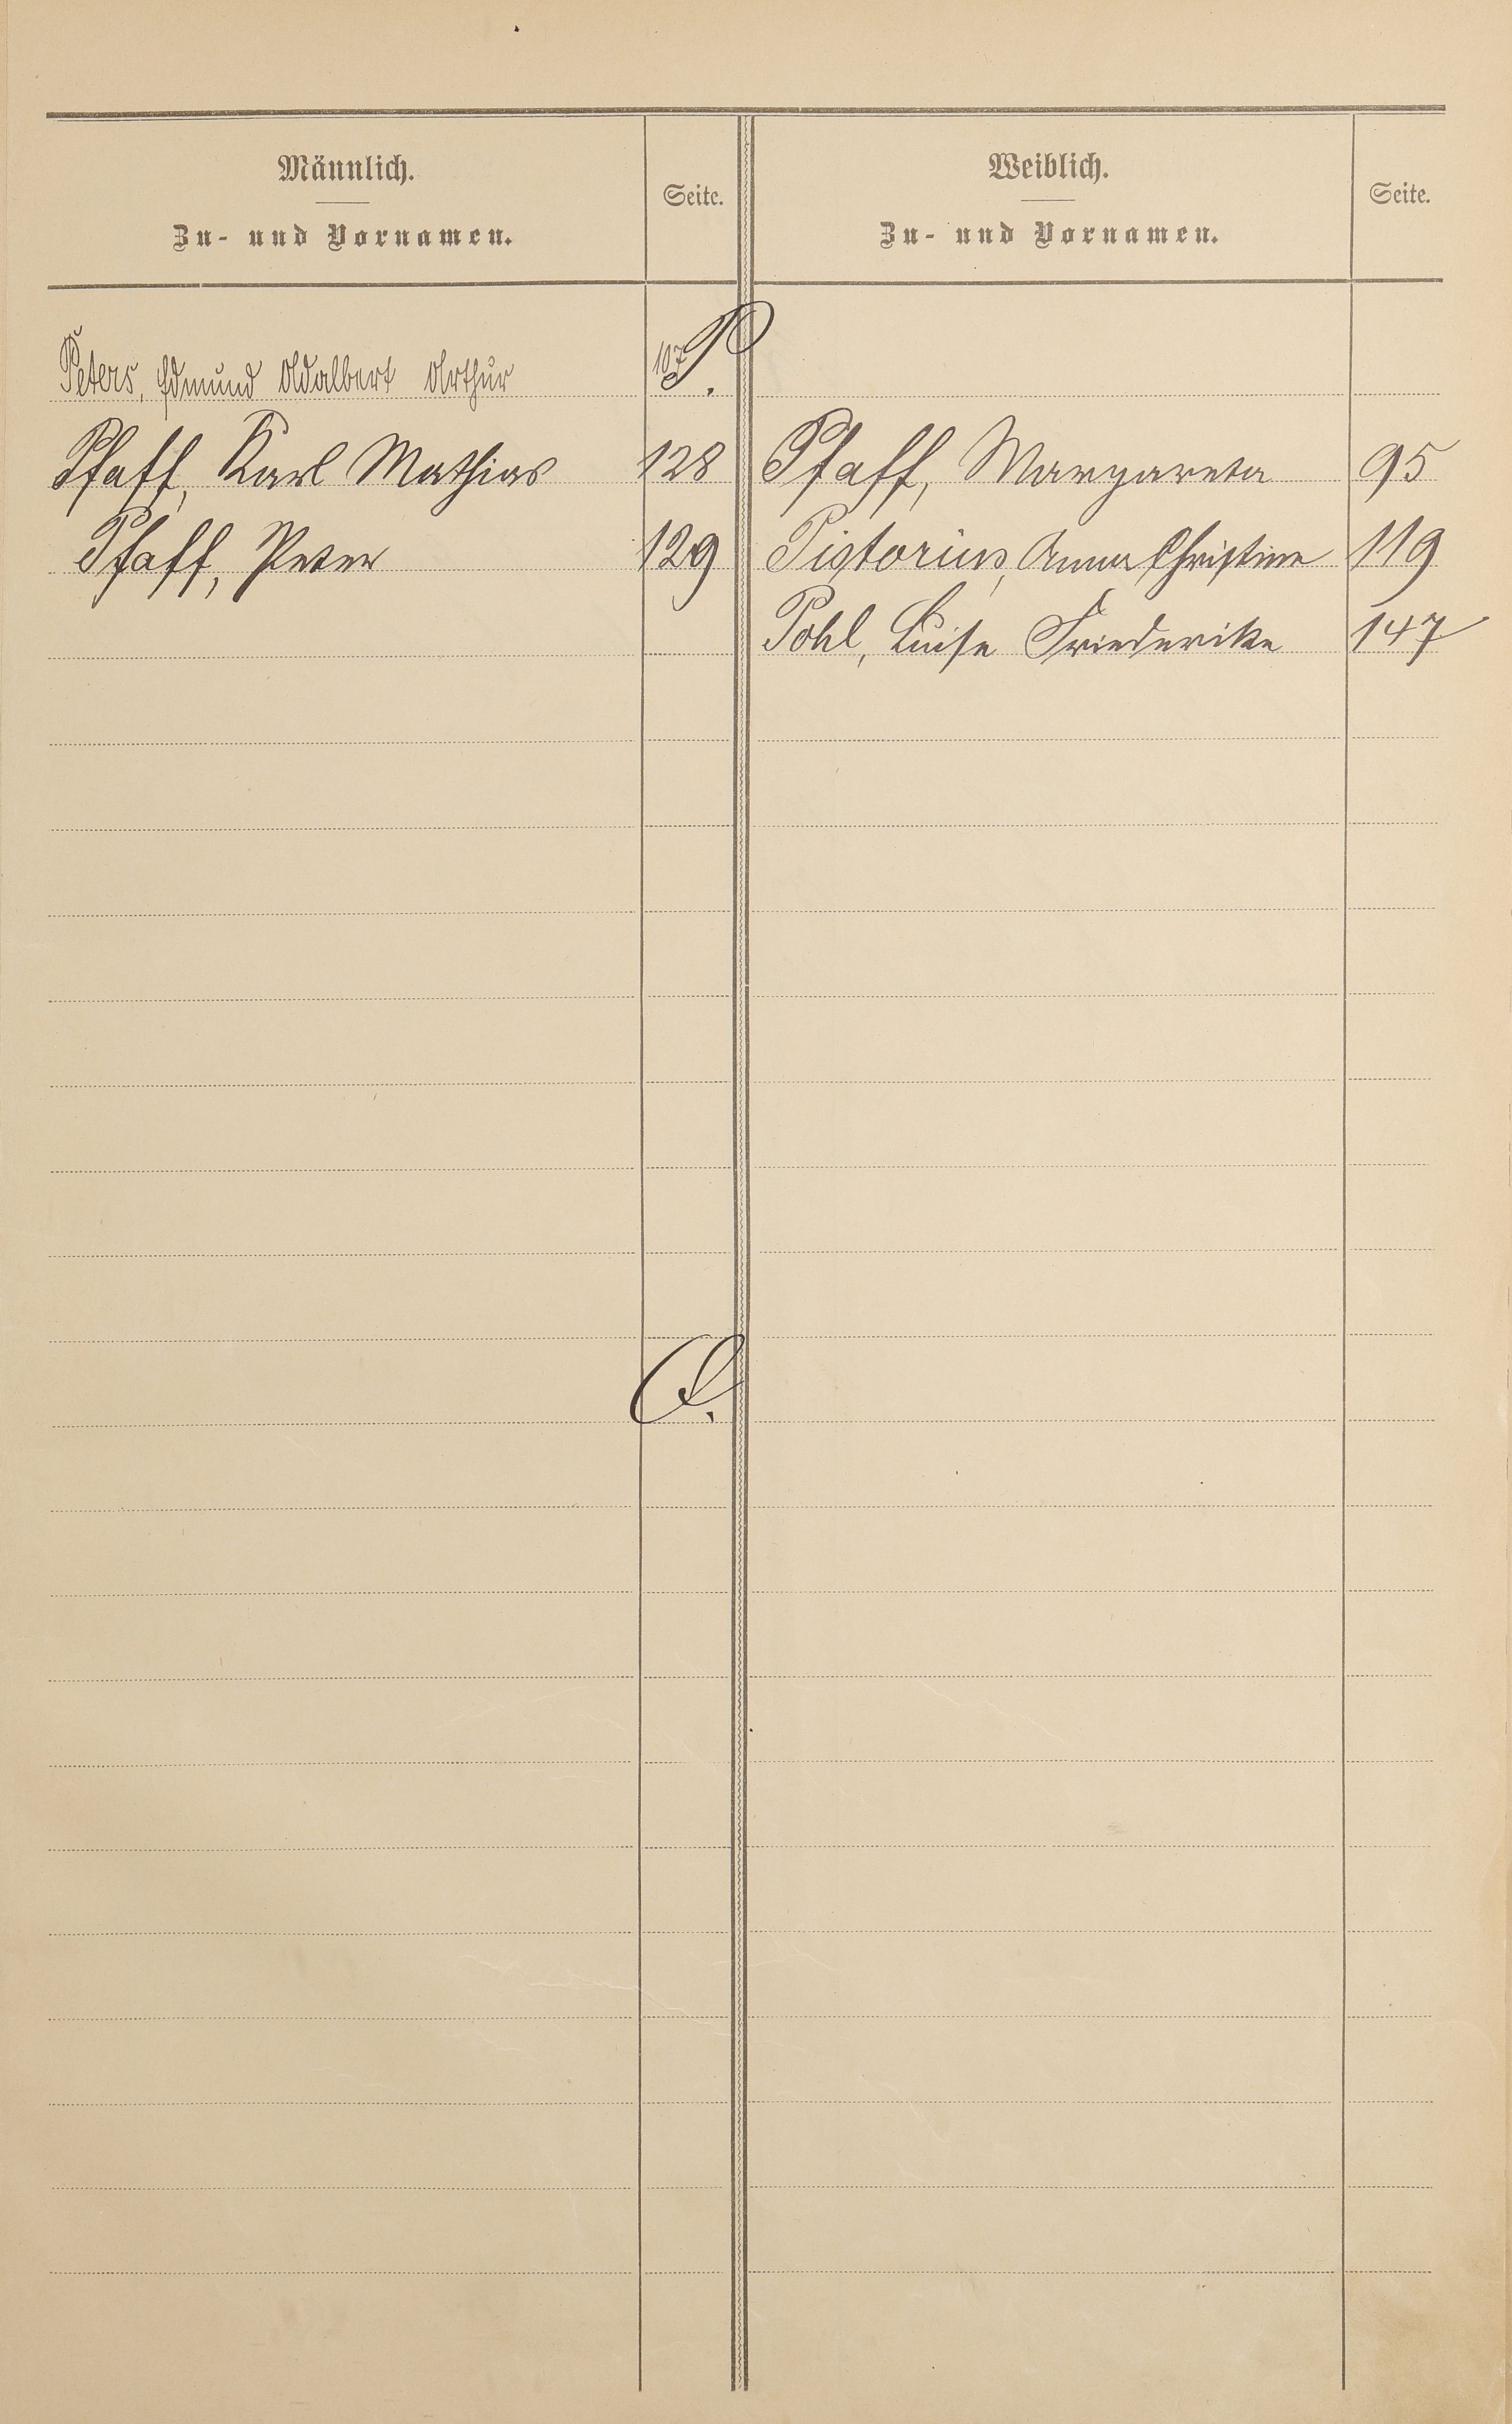 Männlich.
Zu- und Vornamen.
Seite.
Weiblich.
Zu- und Vornamen.
Seite.
P.
Peters, Edmund Adalbert Arthur 107
Pfaff, Karl Mathias 128 Pfaff, Margareta 95
Pfaff, Peter 129 Pistorius, Anna Christine 119
Pohl, Luise Friederike 147
Q.